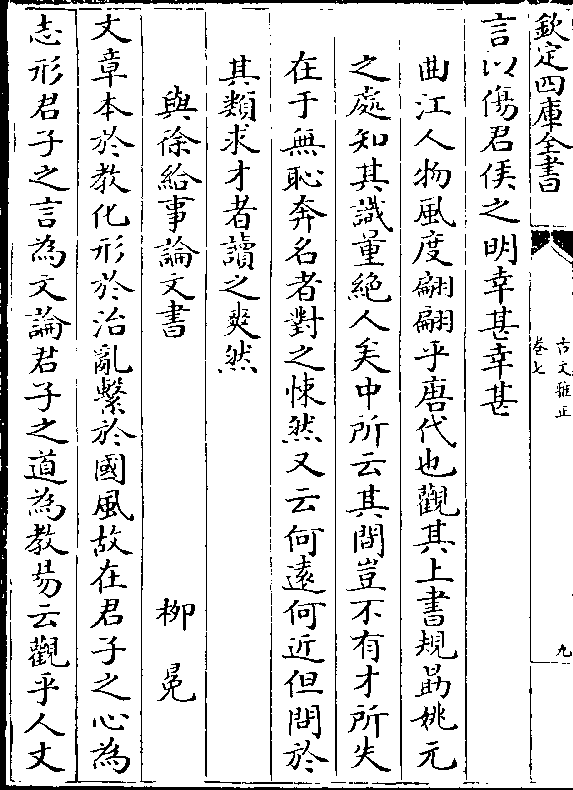 欽定四庫全書
古文雅正
卷七
九
言以傷君侯之明幸甚幸甚
曲江人物風度翩翩乎唐代也觀其上書規勗姚元
之處知其識量絶人矣中所云其間豈不有才所失
在于無恥奔名者對之悚然又云何遠何近但問於
其類求才者讀之爽然
與徐給事論文書 柳冕
文章本於教化形於治亂繫於國風故在君子之心為
志形君子之言為文論君子之道為教易云觀乎人文